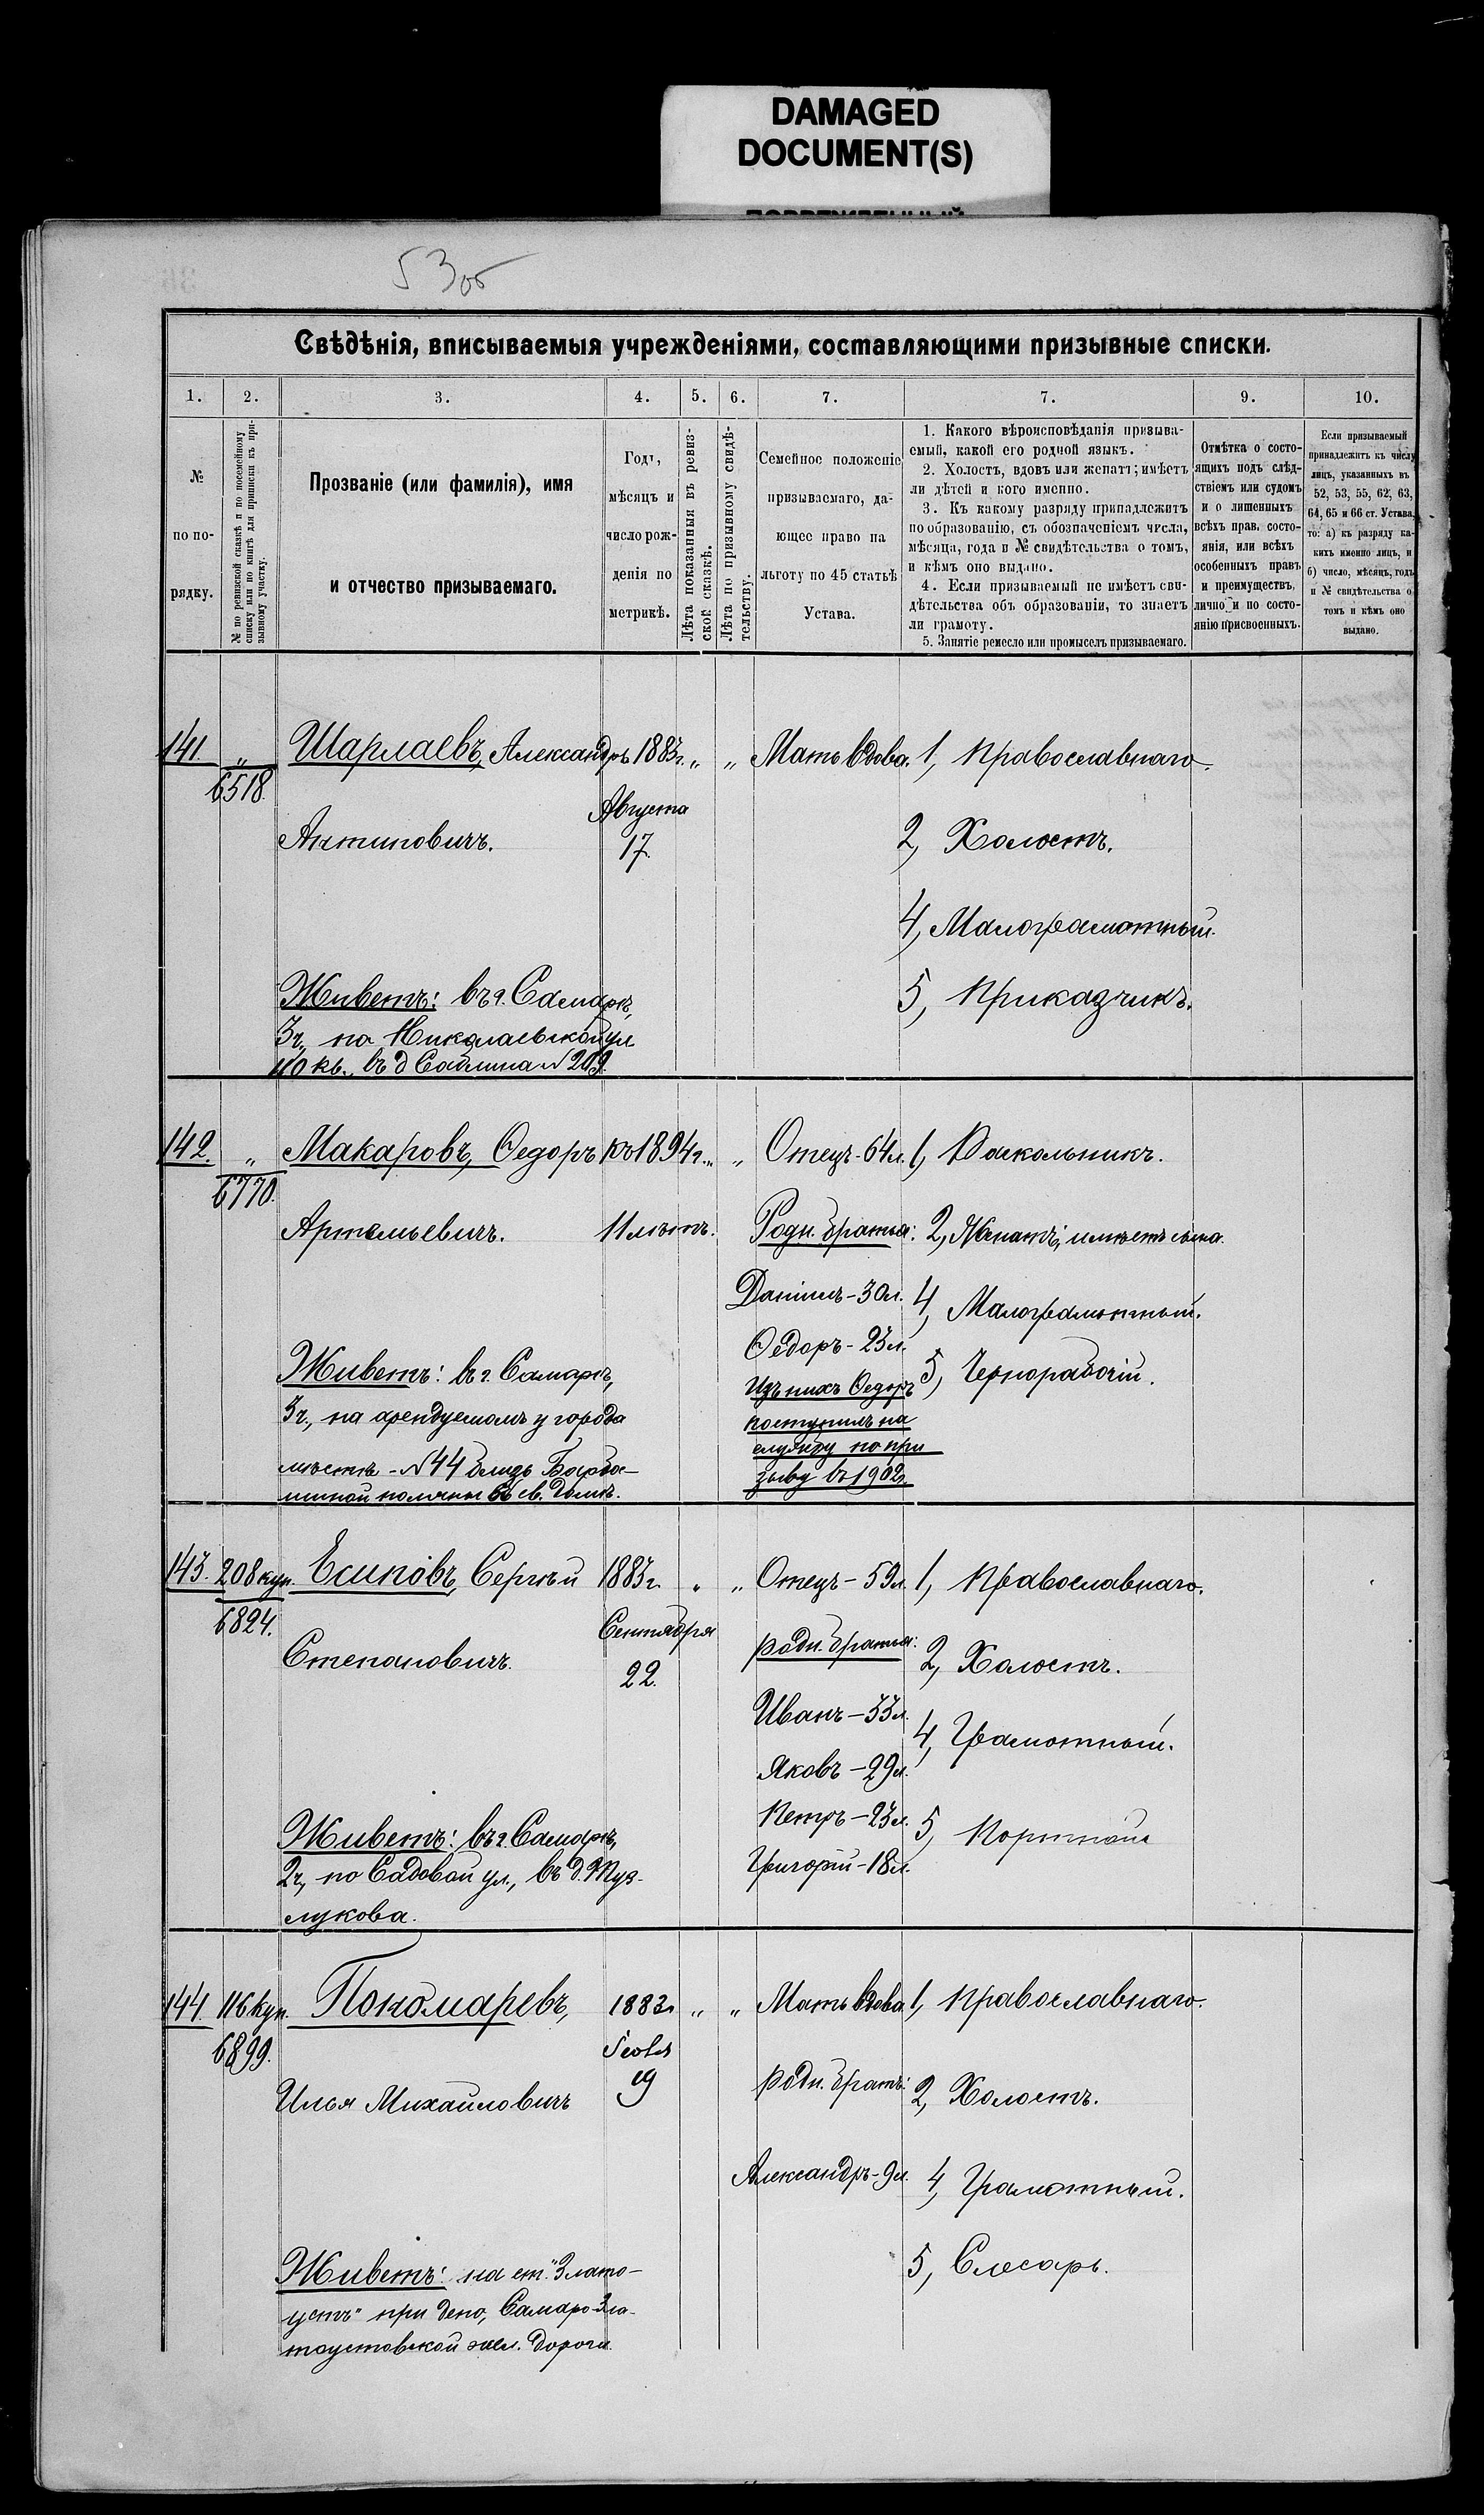 DAMAGED
DOCUMENT(S)
53об
Свѣдѣнія, вписываемыя учрежденіями, составляющими призывные списки.
1. 2. 3. 4. 5. 6. 7. 7. 9. 10.
№
по по-
рядку.
№ по ревизской сказкѣ и по посемейному
списку или по книгѣ для приписки къ при-
зывному участку.
Прозваніе (или фамилія), имя
и отчество призываемаго.
Годъ,
мѣсяцъ и
число рож-
денія по
метрикѣ.
Лѣта показанныя въ ревиз-
ской сказкѣ.
Лѣта по призывному свидѣ-
тельству.
Семейное положеніе
призываемаго, да-
ющее право на
льготу по 45 статьѣ
Устава.
1. Какого вѣроисповѣданія призыва-
емый, какой его родной языкъ.
2. Холостъ, вдовъ или женатъ; имѣетъ
ли дѣтей и кого именно.
3. Къ какому разряду принадлежитъ
по образованію, съ обозначеніемъ числа,
мѣсяца, года и № свидѣтельства о томъ,
и кѣмъ оно выдано.
4. Если призываемый не имѣетъ сви-
дѣтельства объ образованіи, то знаетъ
ли грамоту.
5. Занятіе ремесло или промыселъ призываемаго.
Отмѣтка о состо-
ящихъ подъ слѣд-
ствіемъ или судомъ
и о лишенныхъ
всѣхъ прав. состо-
янія, или всѣхъ
особенныхъ правъ
и преимуществъ,
лично и по состо-
янію присвоенныхъ.
Если призываемый
принадлежитъ къ числу
лицъ, указанныхъ въ
52, 53, 55, 62, 63,
64, 65 и 66 ст. Устава,
то: а) къ разряду ка-
кихъ именно лицъ, и
б) число, мѣсяцъ, годъ
и № свидѣтельства о
томъ и кѣмъ оно
выдано.
141. „ Шарлаевъ, Александръ 1883г. „ „ Мать вдова. 1, Православнаго.
6518.
Августа
Антиповичъ. 17. 2, Холостъ.
4, Малограмотный.
Живетъ: въ г. Самарѣ, 5, Приказчикъ.
3ч., на Николаевской ул
110 кв., въ д Саблина № 209.
142. „ Макаровъ, Ѳедоръ къ 1894г. „ „ Отецъ-64л. 1, Раскольникъ.
6770.
Артемьевичъ. 11 лѣтъ. Родн. братья: 2, Женатъ, имѣетъ сына.
Даніилъ-30л. 4, Малограмотный.
Ѳедоръ-23л.
Живетъ: въ г. Самарѣ, Изъ нихъ Ѳедоръ 5, Чернорабочій.
3ч., на арендуемомъ у города поступилъ на
службу по при
мѣстѣ-№44 близь Барба-
зыву въ 1902г.
шиной поляны въ св. домѣ.
143. 208 куп. Есиповъ, Сергѣй 1883г. „ „ Отецъ-59л. 1, Православнаго.
6824.
Сентября
Степановичъ. 22. родн. братья: 2, Холостъ.
Иванъ-33л. 4, Грамотный.
Яковъ-29л.
Живетъ: въ г. Самарѣ, Петръ-23л. 5, Портной
2ч, по Садовой ул., въ д. Григорій-18л.
лукова.
144. 116 куп. Покомаревъ, 1883г „ „ Мать вдова 1, Православнаго.
6899.
Іюля
Илья Михайловичъ 19 родн. братъ: 2, Холостъ.
Александръ-9л. 4, Грамотный.
Живетъ: на ст. "Злато- 5, Слесарь.
устъ" при депо, Самаро-Зла-
тоустовской жел. дороги.